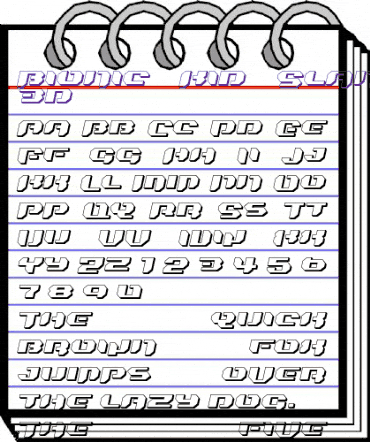 BIONIC KID SLAN
3D
AA BB CC DD EE
FF GG HH II JJ
KK LL MM NN OO
PP QQ RR SS TT
UU VV WW XX
YY ZZ 1 2 3 4 5 6
7 8 9 0
THE QUICK
BROWN FOX
JUMPS OVER
THE LAZY DOG.
THE FIVE